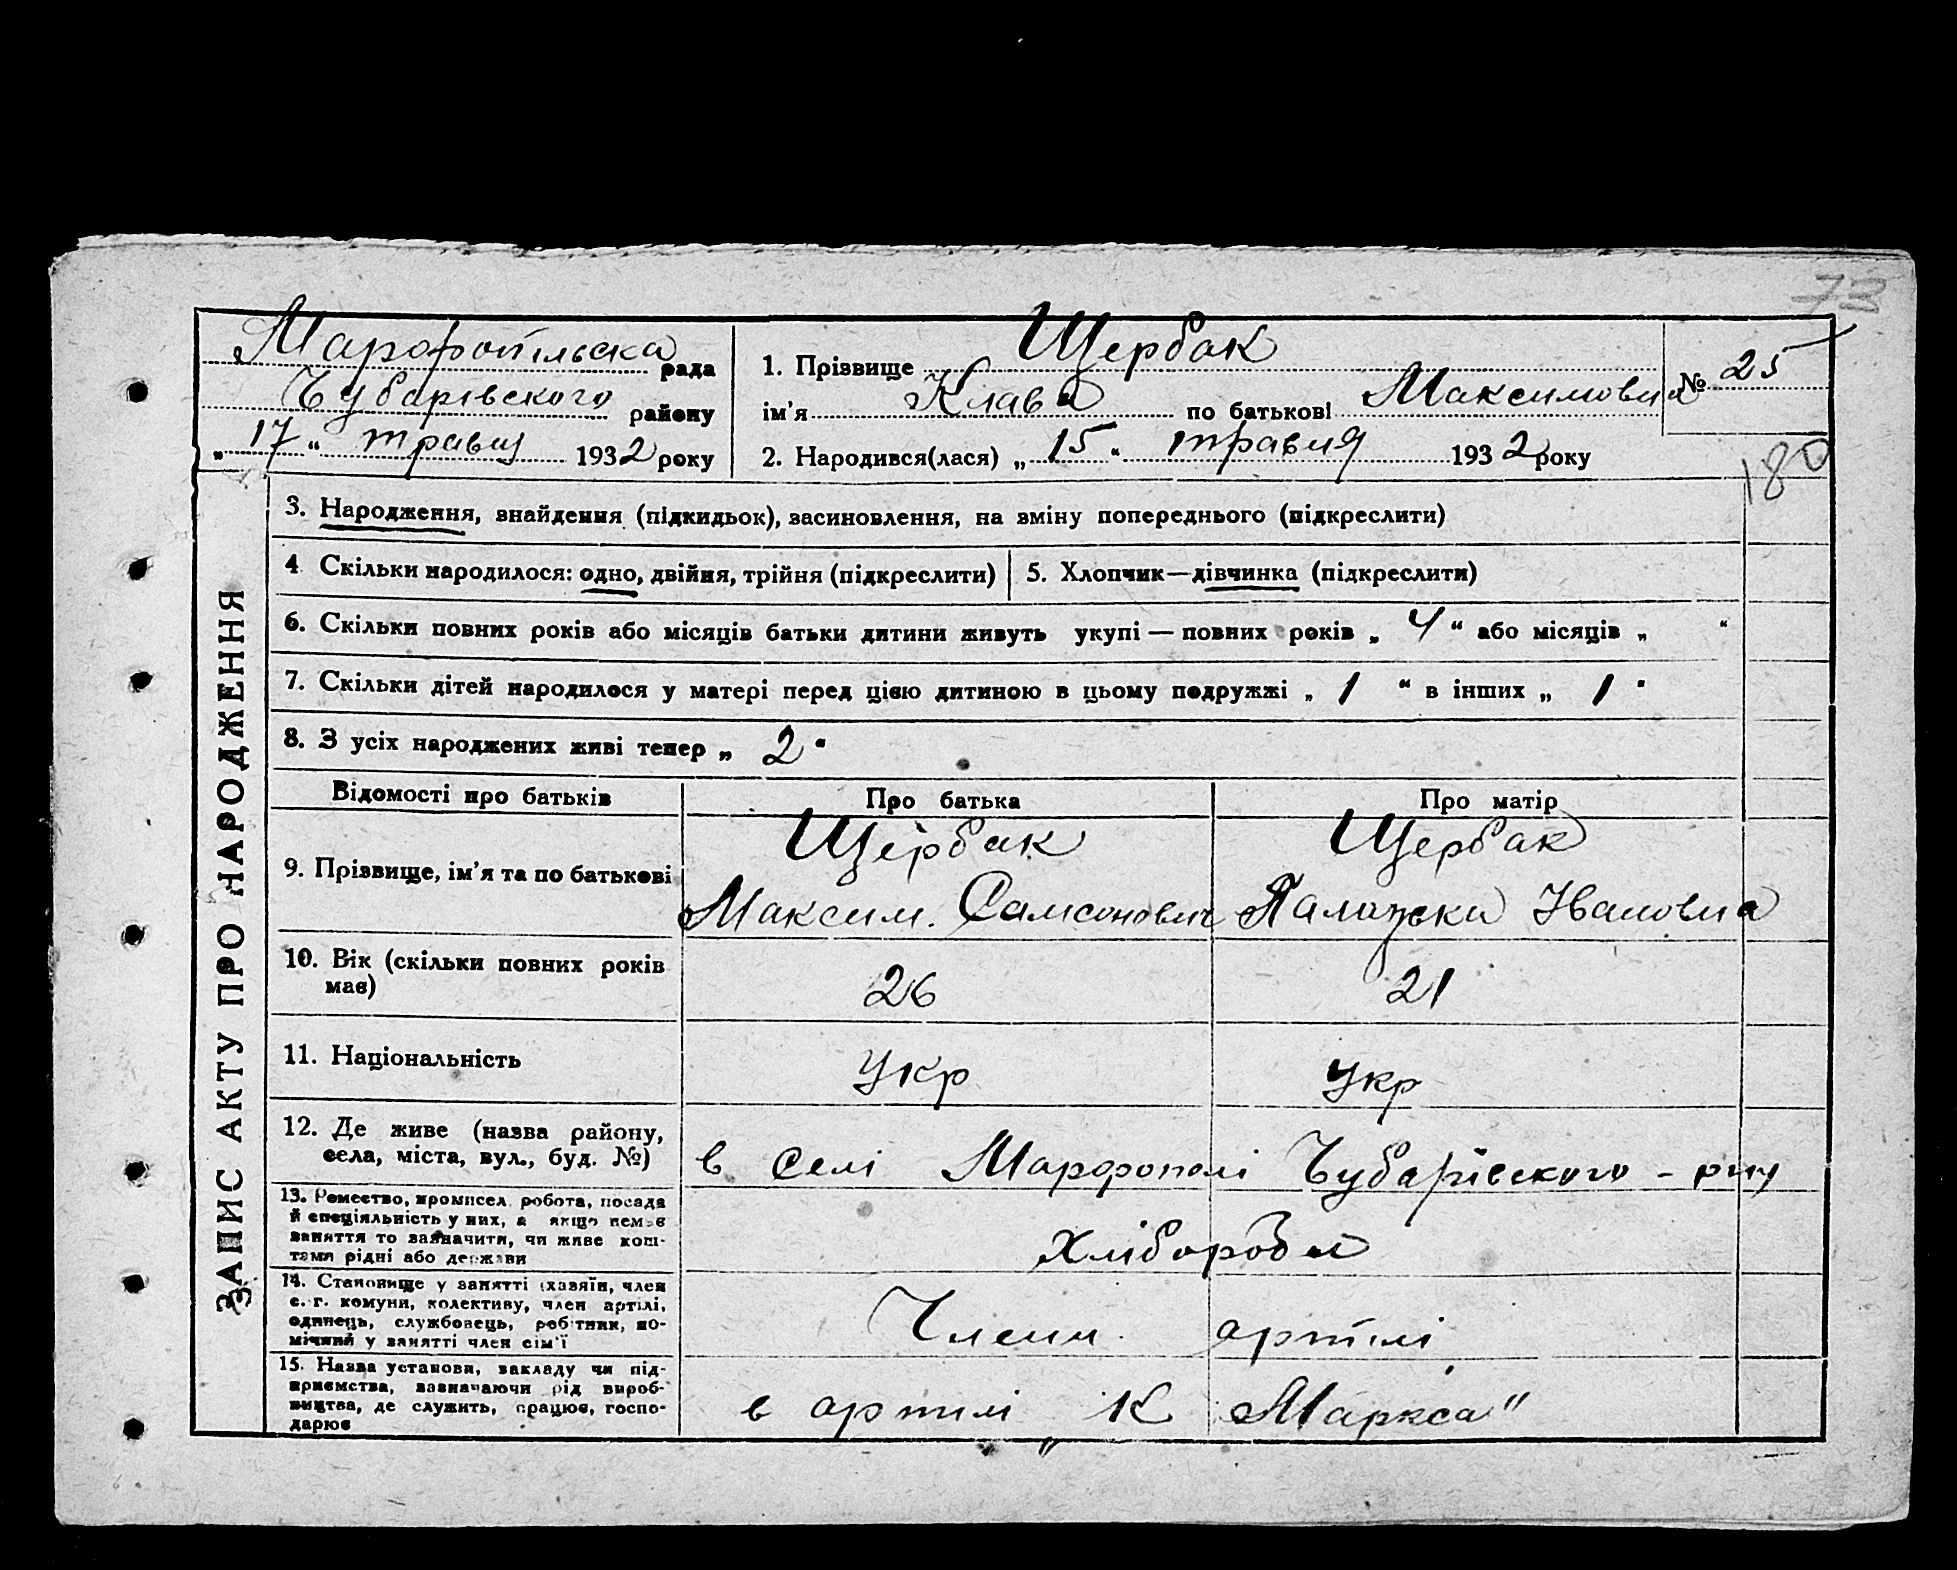 73
Марфопільська рада
Чубарівського району
„ 17 “ травня 1932 року
1. Прізвище Щербак
ім’я Клава по батькові Максимовна
2. Народився(лася) „ 15 “ травня 1932 року
№ 25
180
ЗАПИС АКТУ ПРО НАРОДЖЕННЯ
3. Народження, знайдення (підкидьок), засиновлення, на зміну попереднього (підкреслити)
4 Скільки народилося: одно, двійня, трійня (підкреслити)
5. Хлопчик—дівчинка (підкреслити)
6. Скільки повних років або місяців батьки дитини живуть укупі — повних років „ 4 “ або місяців „ “
7. Скільки дітей народилося у матері перед цією дитиною в цьому подружжі „ 1 “ в інших „ 1 "
8. З усіх народжених живі тепер „ 2 "
Відомості про батьків
Про батька
Про матір
9. Прізвище, ім’я та по батькові
Щербак
Максим. Самсонович
Щербак
Палажка Івановна
10. Вік (скільки повних років
має)
26
21
11. Національність
Укр
Укр
12. Де живе (назва району,
села, міста, вул., буд. №)
в селі Марфополі Чубарівского - рну
13. Ремество, промисел робота, посада
й спеціяльність у них, а якщо немає
заняття то зазначити, чи живе кош-
тами рідні або держави
Хлібороби
14. Становище у занятті (хазяїн, член
с.-г. комуни, колективу, член артілі,
одинець, службовець, робітник, по-
мічний у занятті член сім’ї
Члени артілі
15. Назва установи, закладу чи під-
приємства, зазначаючи рід вироб-
ництва, де служить, працює, госпо-
дарює
в артілі „К Маркса"